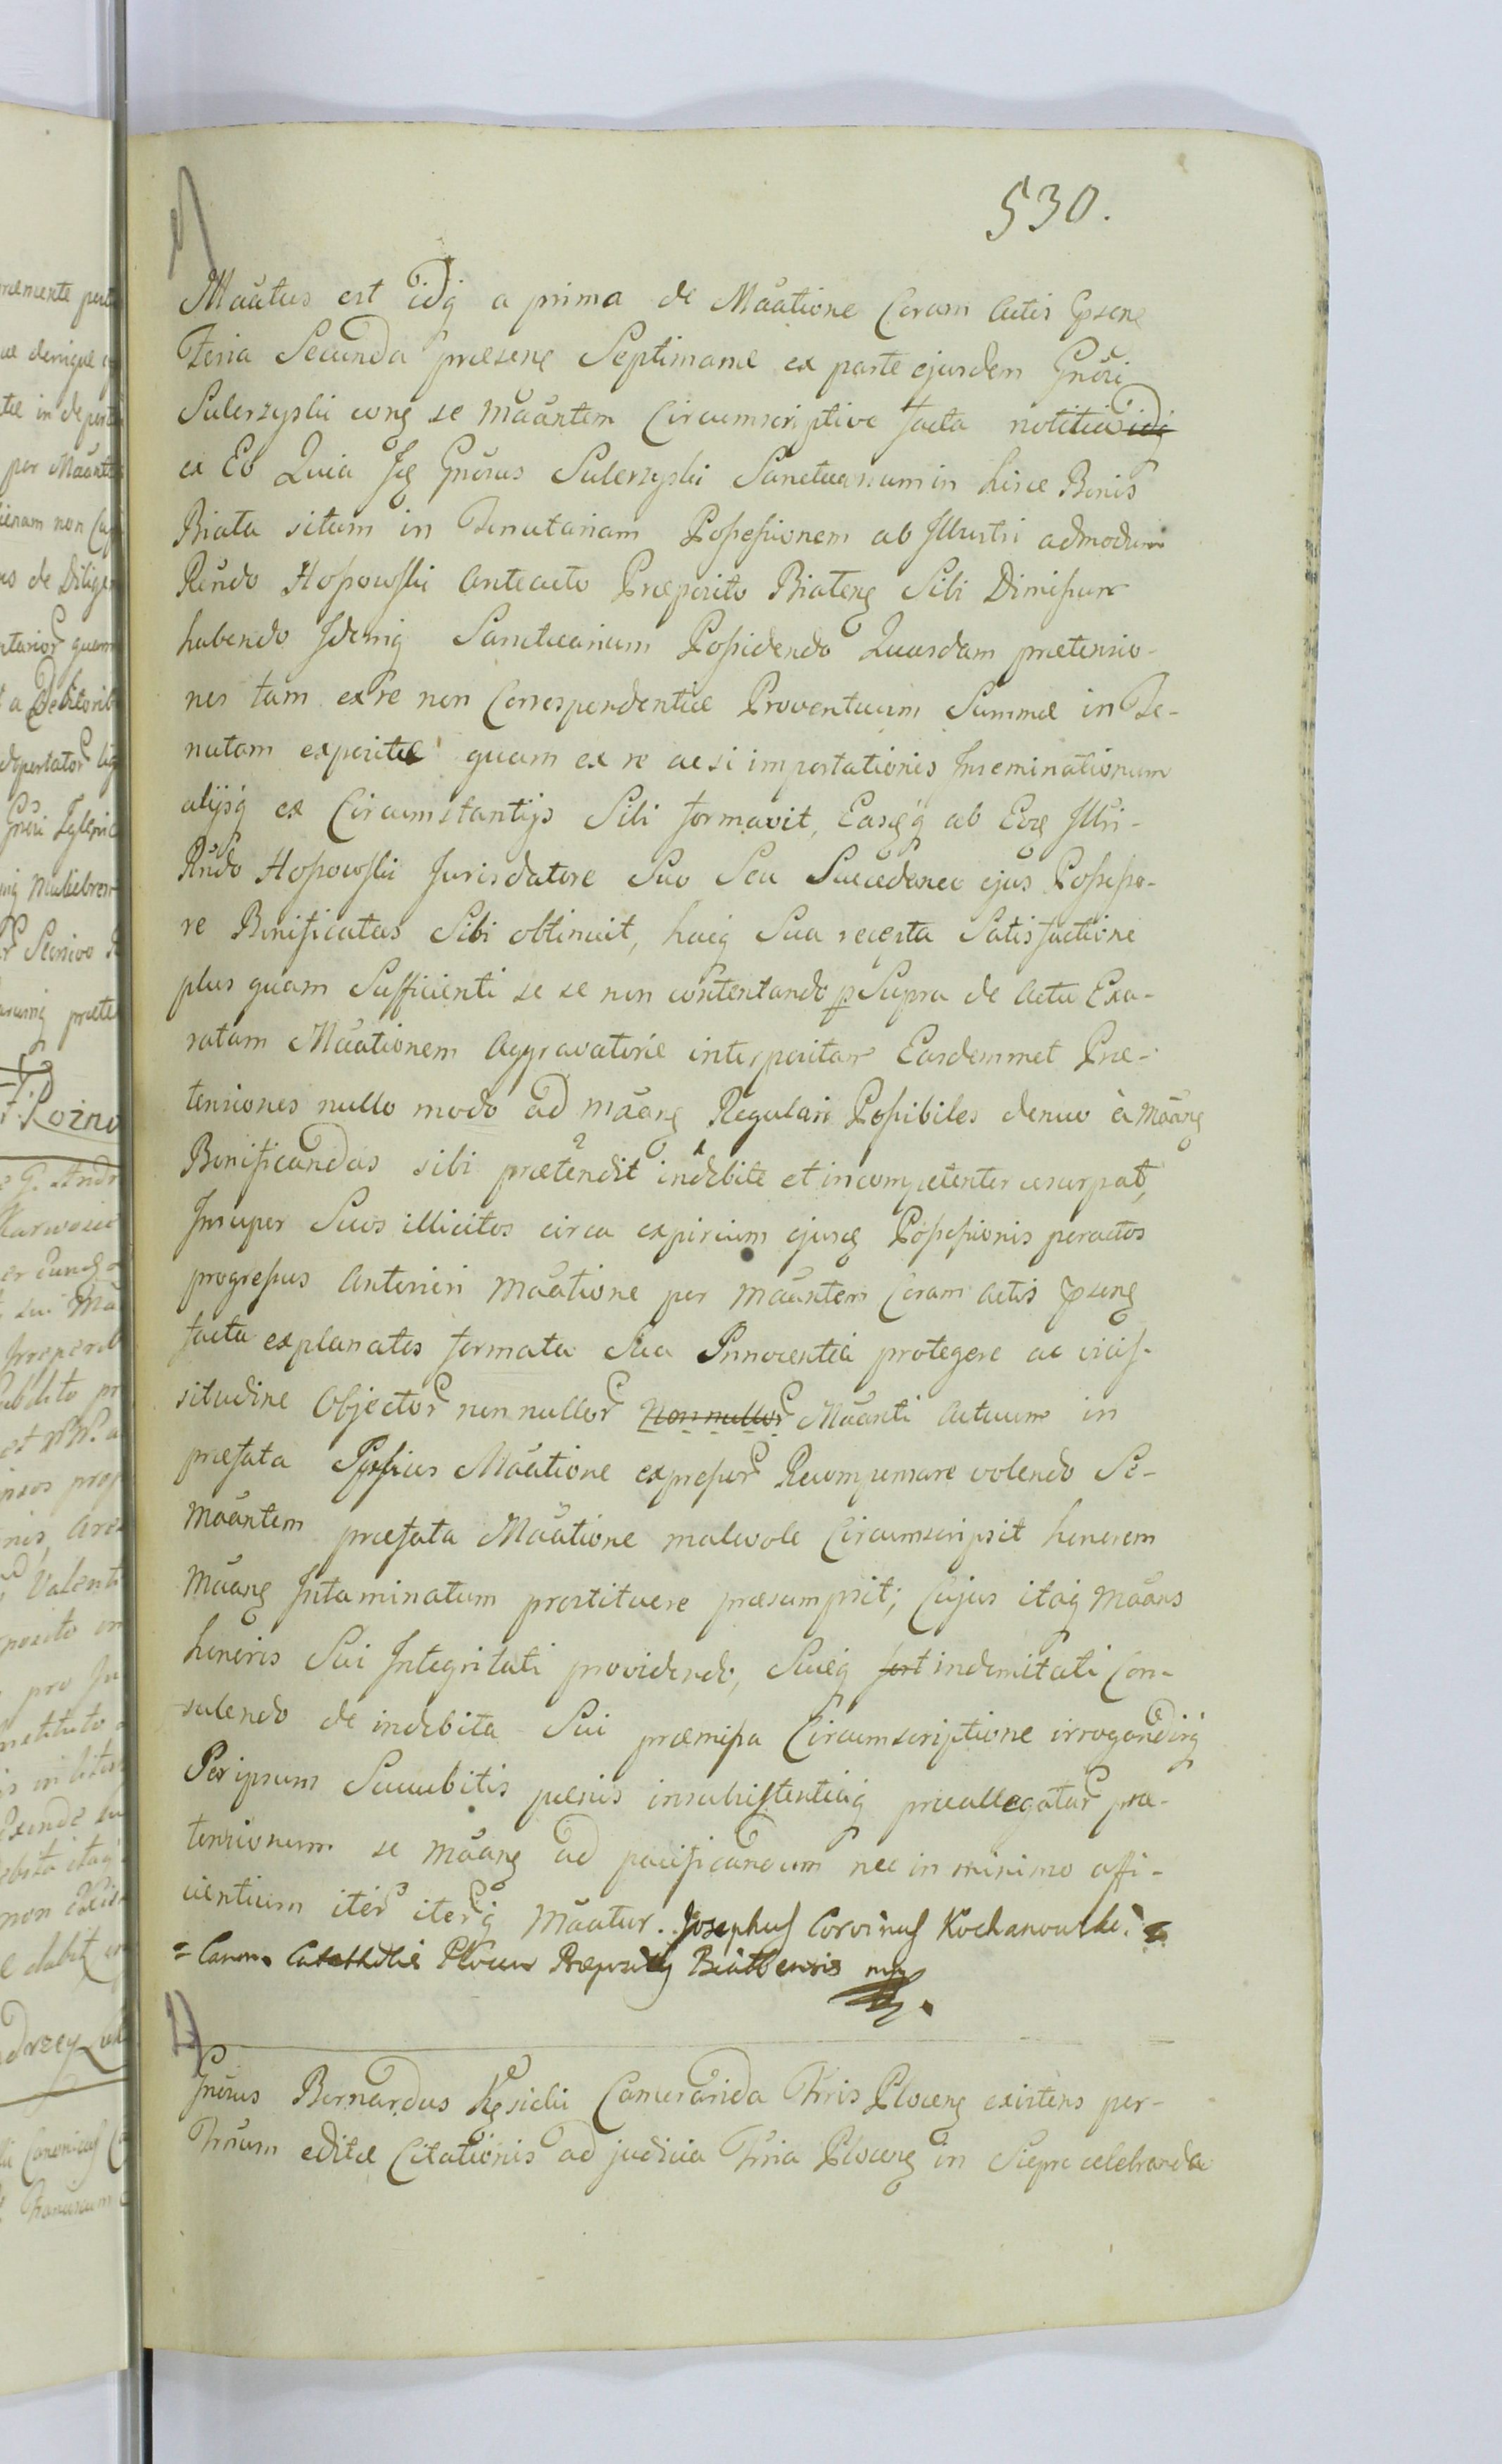 530.
Mãatus est idq a prima de Mãatione Coram Actis Ppsens
Feria Secunda præsens Septimanæ ex parte ejusdem Gnõri
Sulerzyski cong se mãantem Circumscriptive facta notitia idq
ex Eo Quia Is Gnõsus Sulerzyski Sanctuarium in hisce Bonis
Biała situm in Tenutariam Possessionem ab Illustri admodum
Rñdo Hossowski Anteacto Præposito Białens Sibi Dimissum
habendo Idemq Sanctuarium Possidendo Quasdam prætensio-
nes tam ex re non Correspondentiæ Proventuum Summæ in Te-
nutam expositæ quam ex re acsi importationis Inseminationum
alijsq ex Circumstantijs Sibi formavit, Easq ab Eod Illri-
Rñdo Hossowski Jurisdatore Suo Seu Succedaneo ejus Possesso-
re Bonificatas Sibi obtinuit, hacq Sua recepta Satisfactione
plus quam Sufficienti se se non contentando p Supra de Actu Exa-
ratam Mãationem Aggravatorie interpositam Easdemmet Præ-
tensiones nullo modo ad mãang Regulari Possibiles denuo à mãang
Bonificandas sibi prætendit indebite et incompetenter usurpat,
Insuper Suos illicitos circa expirium ejusq Possessionis peractos
progressus Anteriori Mãatione per mãantem Coram Actis Ppseng
facta explanatos formata Sua Innocentia protegere ac vicis-
situdine Objector nonnullor Nonnullor Mãanti Actuum in
præfata Ipsius Mãatione expressor Recompensare volendo Se-
mãantem præfata Mãatione malevole Circumscripsit honorem
mãang Intaminatum prostituere præsumpsit; Cujus itaq mãans
honoris Sui Integritati providendo, Suæq indemitati Con-
sulendo de indebita Sui præmissa Circumscriptione irrogandisq
Per ipsum Succubitis pœnis insubsistentiaq præallegatar præ-
tensionum se mãang ad pacificandum nec in minimo affi-
cientium iter iterq mãatur. Josephus Corvinus Kochanowski
= Canon Cathethdlis Plocen Præpositg Białlensis mp
Gnõsus Bernardus Kęsicki Camerarida Trris Plocens existens per-
Trnum editæ Citationis ad judicia Trria Plocens in Sierpc celebranda